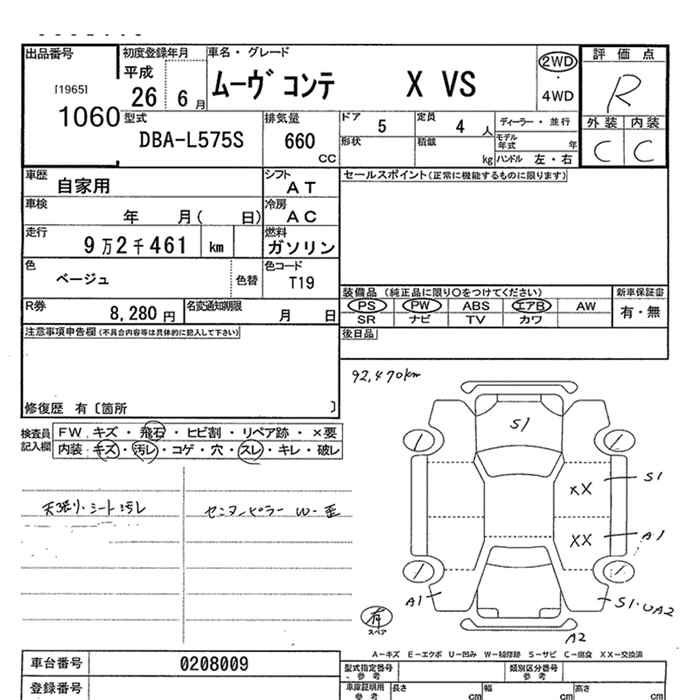 出品番号
[1965]
1060
初度登録年月
平成
26 6月
車名・グレード
ムーヴ コンテ X VS
2WD
4WD
評価点
R
外装 内装
C C
型式
DBA-L575S
排気量
660
CC
ドア
5
定員
4 人
ディーラー・並行
モデル年式 年
形状
積載
kg
ハンドル 左・右
車歴
自家用
シフト
AT
セールスポイント(正常に機能するものに限ります)
車検
年 月( 日)
冷房
AC
走行
9万2千461 km
燃料
ガソリン
色
ベージュ
色替
色コード
T19
装備品 (純正品に限り○をつけてください)
新車保証書
PS PW ABS エアB AW
有・無
SR ナビ TV カワ
R券
8,280円
名変通知期限
月 日
後日品
注意事項申告欄(不具合内容等は具体的に記入して下さい)
修復歴 有〔箇所 〕
92,470km
検査員記入欄
FW キズ・飛石・ヒビ割・リペア跡・×要
内装 キズ・汚レ・コゲ・穴・スレ・キレ・破レ
天張り・シート汚レ
センターピラー W・歪
S1
XX
S1
XX
A1
A1
S1・UA2
A2
有
スペア
A=キズ E=エクボ U=凹み W=補修跡 S=サビ C=腐食 XX=交換済
車台番号
0208009
型式指定番号
参考
類別区分番号
参考
登録番号
車庫証明用
参考
長さ
cm
幅
cm
高さ
cm